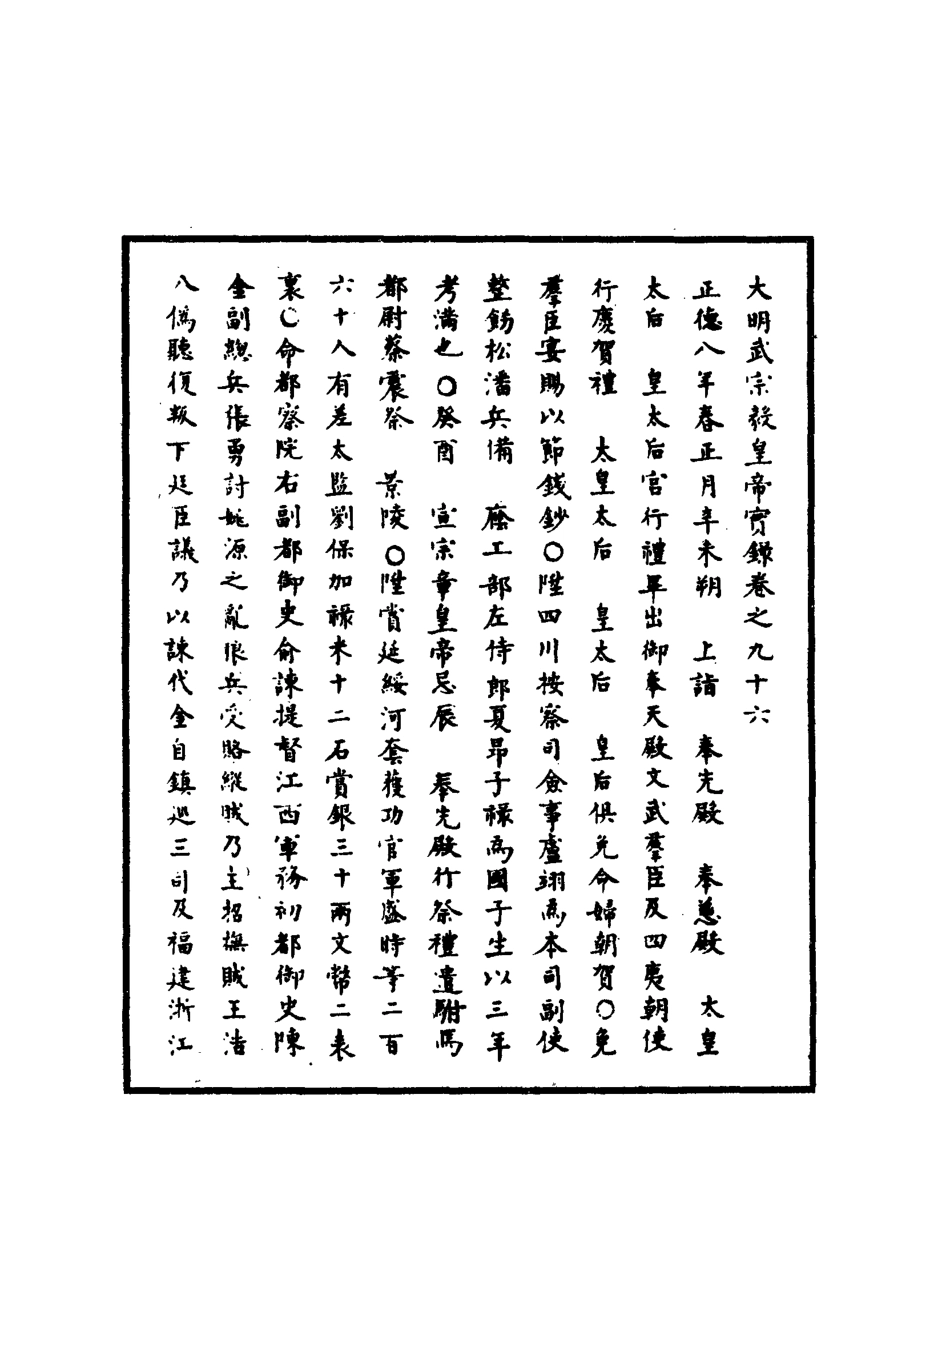 大明武宗毅皇帝實錄卷之九十六
正德八年春正月辛未朔　上詣　奉先殿　奉慈殿　太皇
太后　皇太后宮行禮畢出御奉天殿文武羣臣及四夷朝使
行慶賀禮　太皇太后　皇太后　皇后俱免命婦朝賀○免
羣臣宴賜以節錢鈔○陞四川按察司僉事盧翊為本司副使
整飭松潘兵備　廕工部左侍郎夏昂子祿為國子生以三年
考滿也○癸酉　宣宗章皇帝忌辰　奉先殿行祭禮遣駙馬
都尉蔡震祭　景陵○陞賞延綏河套獲功官軍盛時等二百
六十人有差太監劉保加祿米十二石賞銀三十兩文幣二表
裏○命都察院右副都御史俞諫提督江西軍務初都御史陳
金副總兵張勇討姚源之亂狼兵受賂縱賊乃主招撫賊王浩
八偽聽復叛下廷臣議乃以諫代金自鎮巡三司及福建浙江